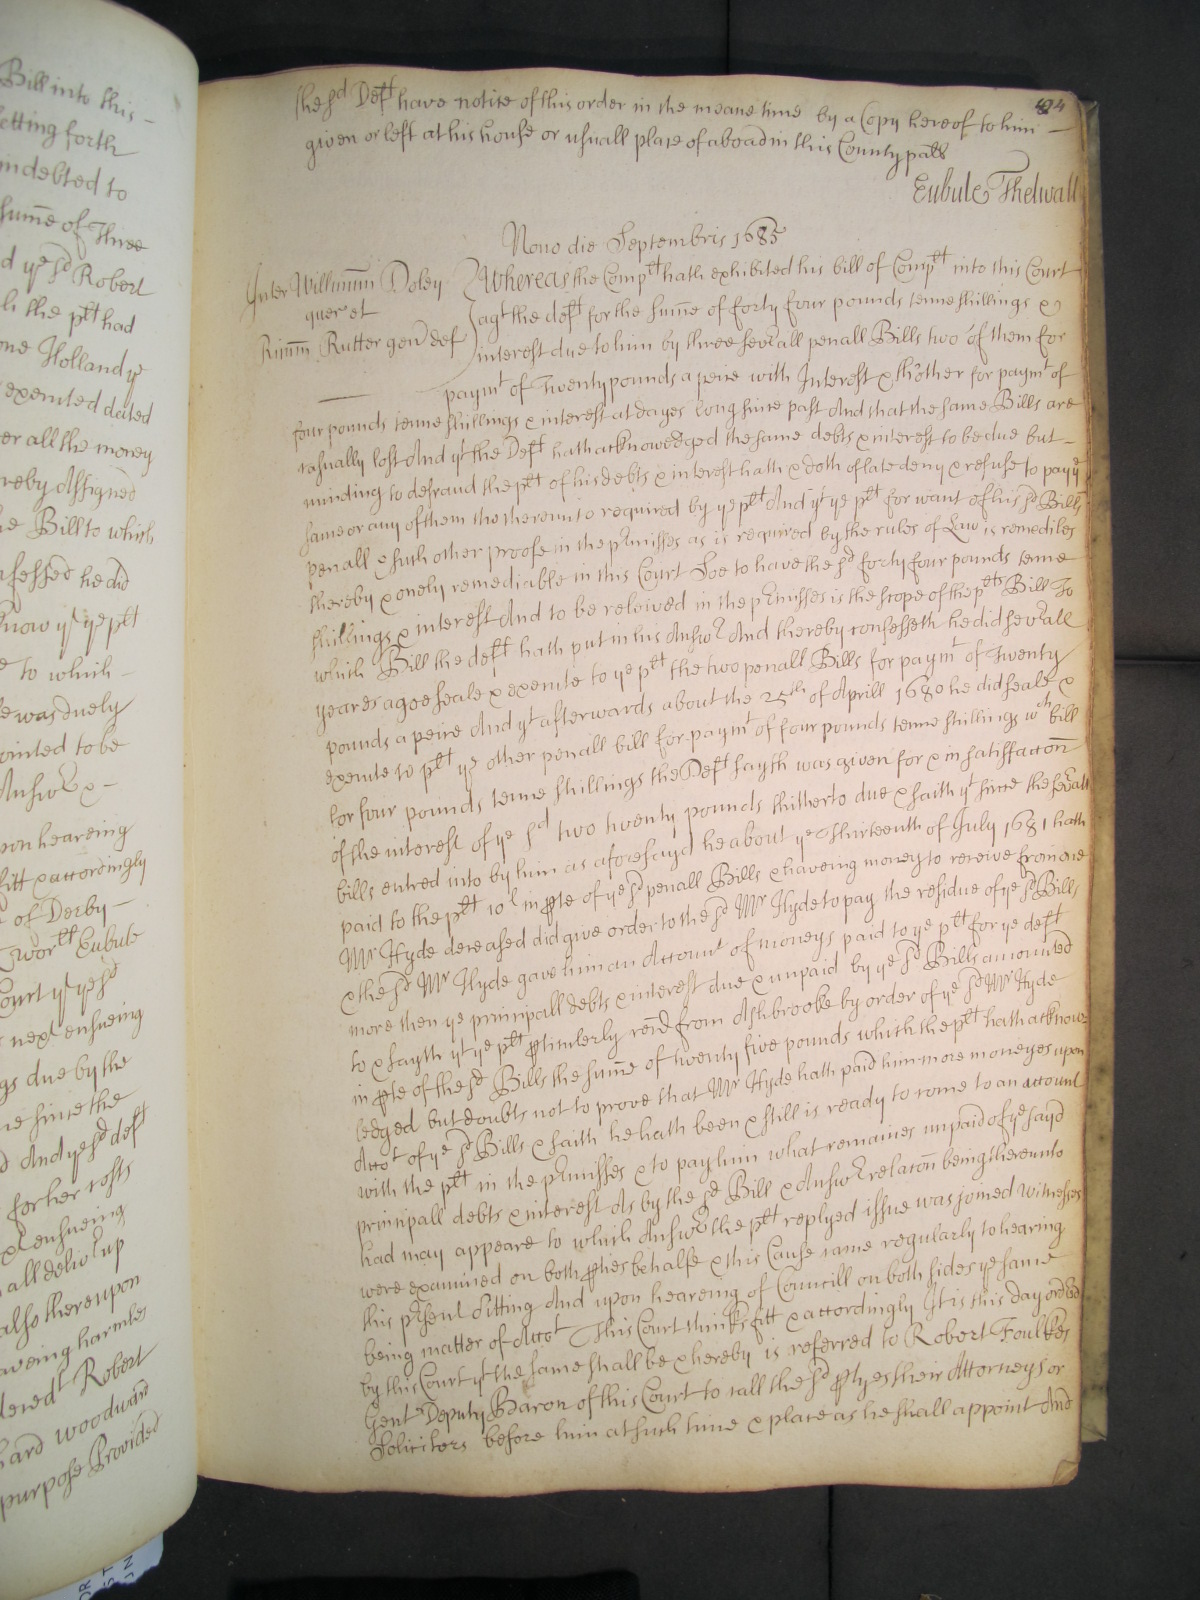 Bill into this –
setting forth
indebted to
summe of Three
d ye sd Robert
h the plt had
one Holland ye
executed dated
er all the money
reby Assigned
he Bill to which
nfessed he did
know yt ye plt
e to which –
e was duely
ointed to be
Answr &c –
pon heareing
fitt & accordingly
of Derby –
Worll Eubule
Court yt ye sd
next ensueing
gs due by the
ne since the
And ye sd deft
for her costs
xt ensueing
all delivr up
also thereupon
aveing harmles
Robert
hard woodward
purpose Provided
494
the sd Deft have notice of this order in the meane time by a Copy hereof to him –
given or left at his house or usuall place of aboad in this County pallt
Eubule Thelwall
Nono die Septembris 1685
Inter Willimum Doley
quer et
Ricum Rutter gen def
Whereas the Complt hath exhibited his bill of Complt into this Court
agt the deft for the summe of forty four pounds tenne shillings &
interest due to him by three severall penall Bills two of them for
paymt of Twenty pounds a peice with Interest & th'other for paymt of
four pounds tenne shillings & interest at dayes long since past And that the same Bills are
casually lost And yt the Deft hath acknowledged the same debts & interest to be due but –
minding to defraud the plt of his debts & interest hath & doth of late deny & refuse to pay ye
same or any of them tho thereunto required by ye plt And yt ye plt for want of his sd Bills
penall & such other proofe in the prmisses as is required by the rules of Law is remediles
thereby & onely remediable in this Court Soe to have the sd forty four pounds tenne
shillings & interest And to be releived in the prmisses is the scope of the plts Bill To
which Bill the deft hath put in his Answr And thereby confesseth he did severall
yeares agoe seale & execute to ye plt the two penall Bills for paymt of Twenty
pounds a peice And yt afterwards about the 25th of Aprill 1680 he did seale &
execute to plt ye other penall bill for paymt of four pounds tenne shillings wch bill
for four pounds tenne shillings the Deft sayth was given for & in satisfaccon
of the interest of ye sd two twenty pounds thitherto due & saith yt since the severall
bills entred into by him as aforesayd he about ye thirteenth of July 1681 hath
paid to the plt 10l in pte of ye sd penall Bills & haveing money to receive from one
Mr Hyde deceased did give order to the sd Mr Hyde to pay the residue of ye sd Bills
& the sd Mr Hyde gave him an Account of moneys paid to ye plt for ye deft
more then ye principall debts & interest due & unpaid by ye sd Bills amounted
to & sayth yt ye plt pticulerly recd from Ashbrooke by order of ye sd Mr Hyde
in pte of the sd Bills the summe of twenty five pounds which the plt hath acknow-
ledged but doubts not to prove that Mr Hyde hath paid him more moneyes upon
Accot of ye sd Bills & saith he hath been & still is ready to come to an account
with the plt in the prmisses & to pay him what remaines unpaid of ye sayd
principall debts & interest As by the sd Bill & Answr relacon being thereunto
had may appeare to which Answr the plt replyed issue was joined witnesses
were examined on both pties behalfe & this Cause came regularly to hearing
this prsent Sitting And upon heareing of Councill on both sides ye same
being matter of Accot This Court thinks fitt & accordingly It is this day ordered
by this Court yt the same shall be & hereby is referred to Robert Foulkes
Gent Deputy Baron of this Court to call the sd ptyes their Attorneys or
Solicitors before him at such time & place as he shall appoint And